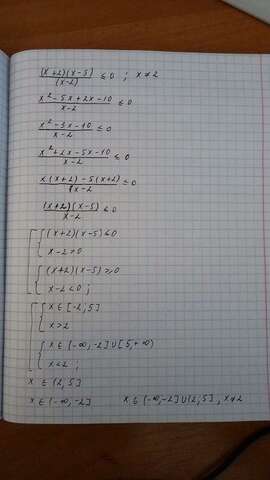 (x+2)(x-5)/(x-2) ≤ 0 ; x≠2
x²-5x+2x-10/x-2 ≤ 0
x²-3x-10/x-2 ≤ 0
x²+2x-5x-10/x-2 ≤ 0
x(x+2)-5(x+2)/x-2 ≤ 0
(x+2)(x-5)/x-2 ≤ 0
(x+2)(x-5) ≤ 0
x-2 > 0
(x+2)(x-5) ≥ 0
x-2 < 0 ;
x ∈ [-2, 5]
x > 2
x ∈ (-∞, -2] ∪ [5, +∞)
x < 2 ;
x ∈ (2, 5]
x ∈ (-∞, -2] x ∈ (-∞, -2] ∪ (2, 5] , x≠2